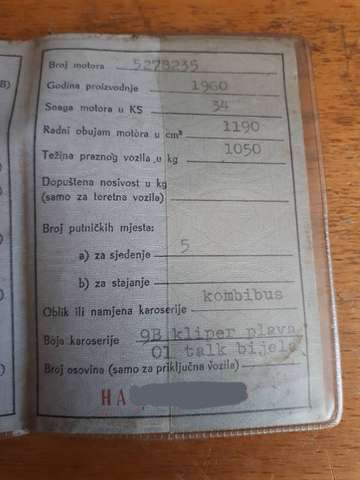 Broj motora 5278235
Godina proizvodnje 1960
Snaga motora u KS 34
Radni obujam motora u cm³ 1190
Težina praznog vozila u kg 1050
Dopuštena nosivost u kg
(samo za teretna vozila)
Broj putničkih mjesta:
a) za sjedenje 5
b) za stajanje
Oblik ili namjena karoserije kombibus
Boja karoserije 9B kliper plava
01 talk bijela
Broj osovina (samo za priključna vozila)
HA